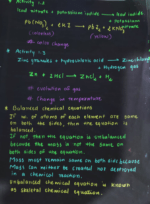 Activity - 2
Lead nitrate + potassium iodide → Lead iodide
+ Potassium
Pb(NO3)2 + 2KI → PbI2 + 2KNO3
(yellow)
⇒ color change
Activity - 3
Zinc granules + hydrochloric acid →
+ Hydrogen gas
Zn + 2HCl → ZnCl2 + H2
⇒ evolution of gas
⇒ change in temperature
Balanced chemical equations
If no. of atoms of each element are same
on both the sides, then the equation is
balanced.
If not then the equation is unbalanced
because the mass is not the same on
both sides of the equation.
Mass must remain same on both sides because
Mass can neither be created nor destroyed
in a chemical reaction.
Unbalanced chemical equation is known
as skeletal chemical equations.